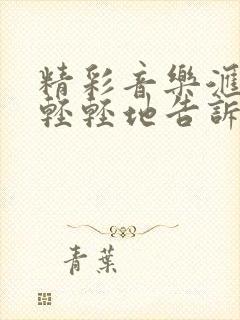 精彩音樂滙
輕輕地告訴
青葉